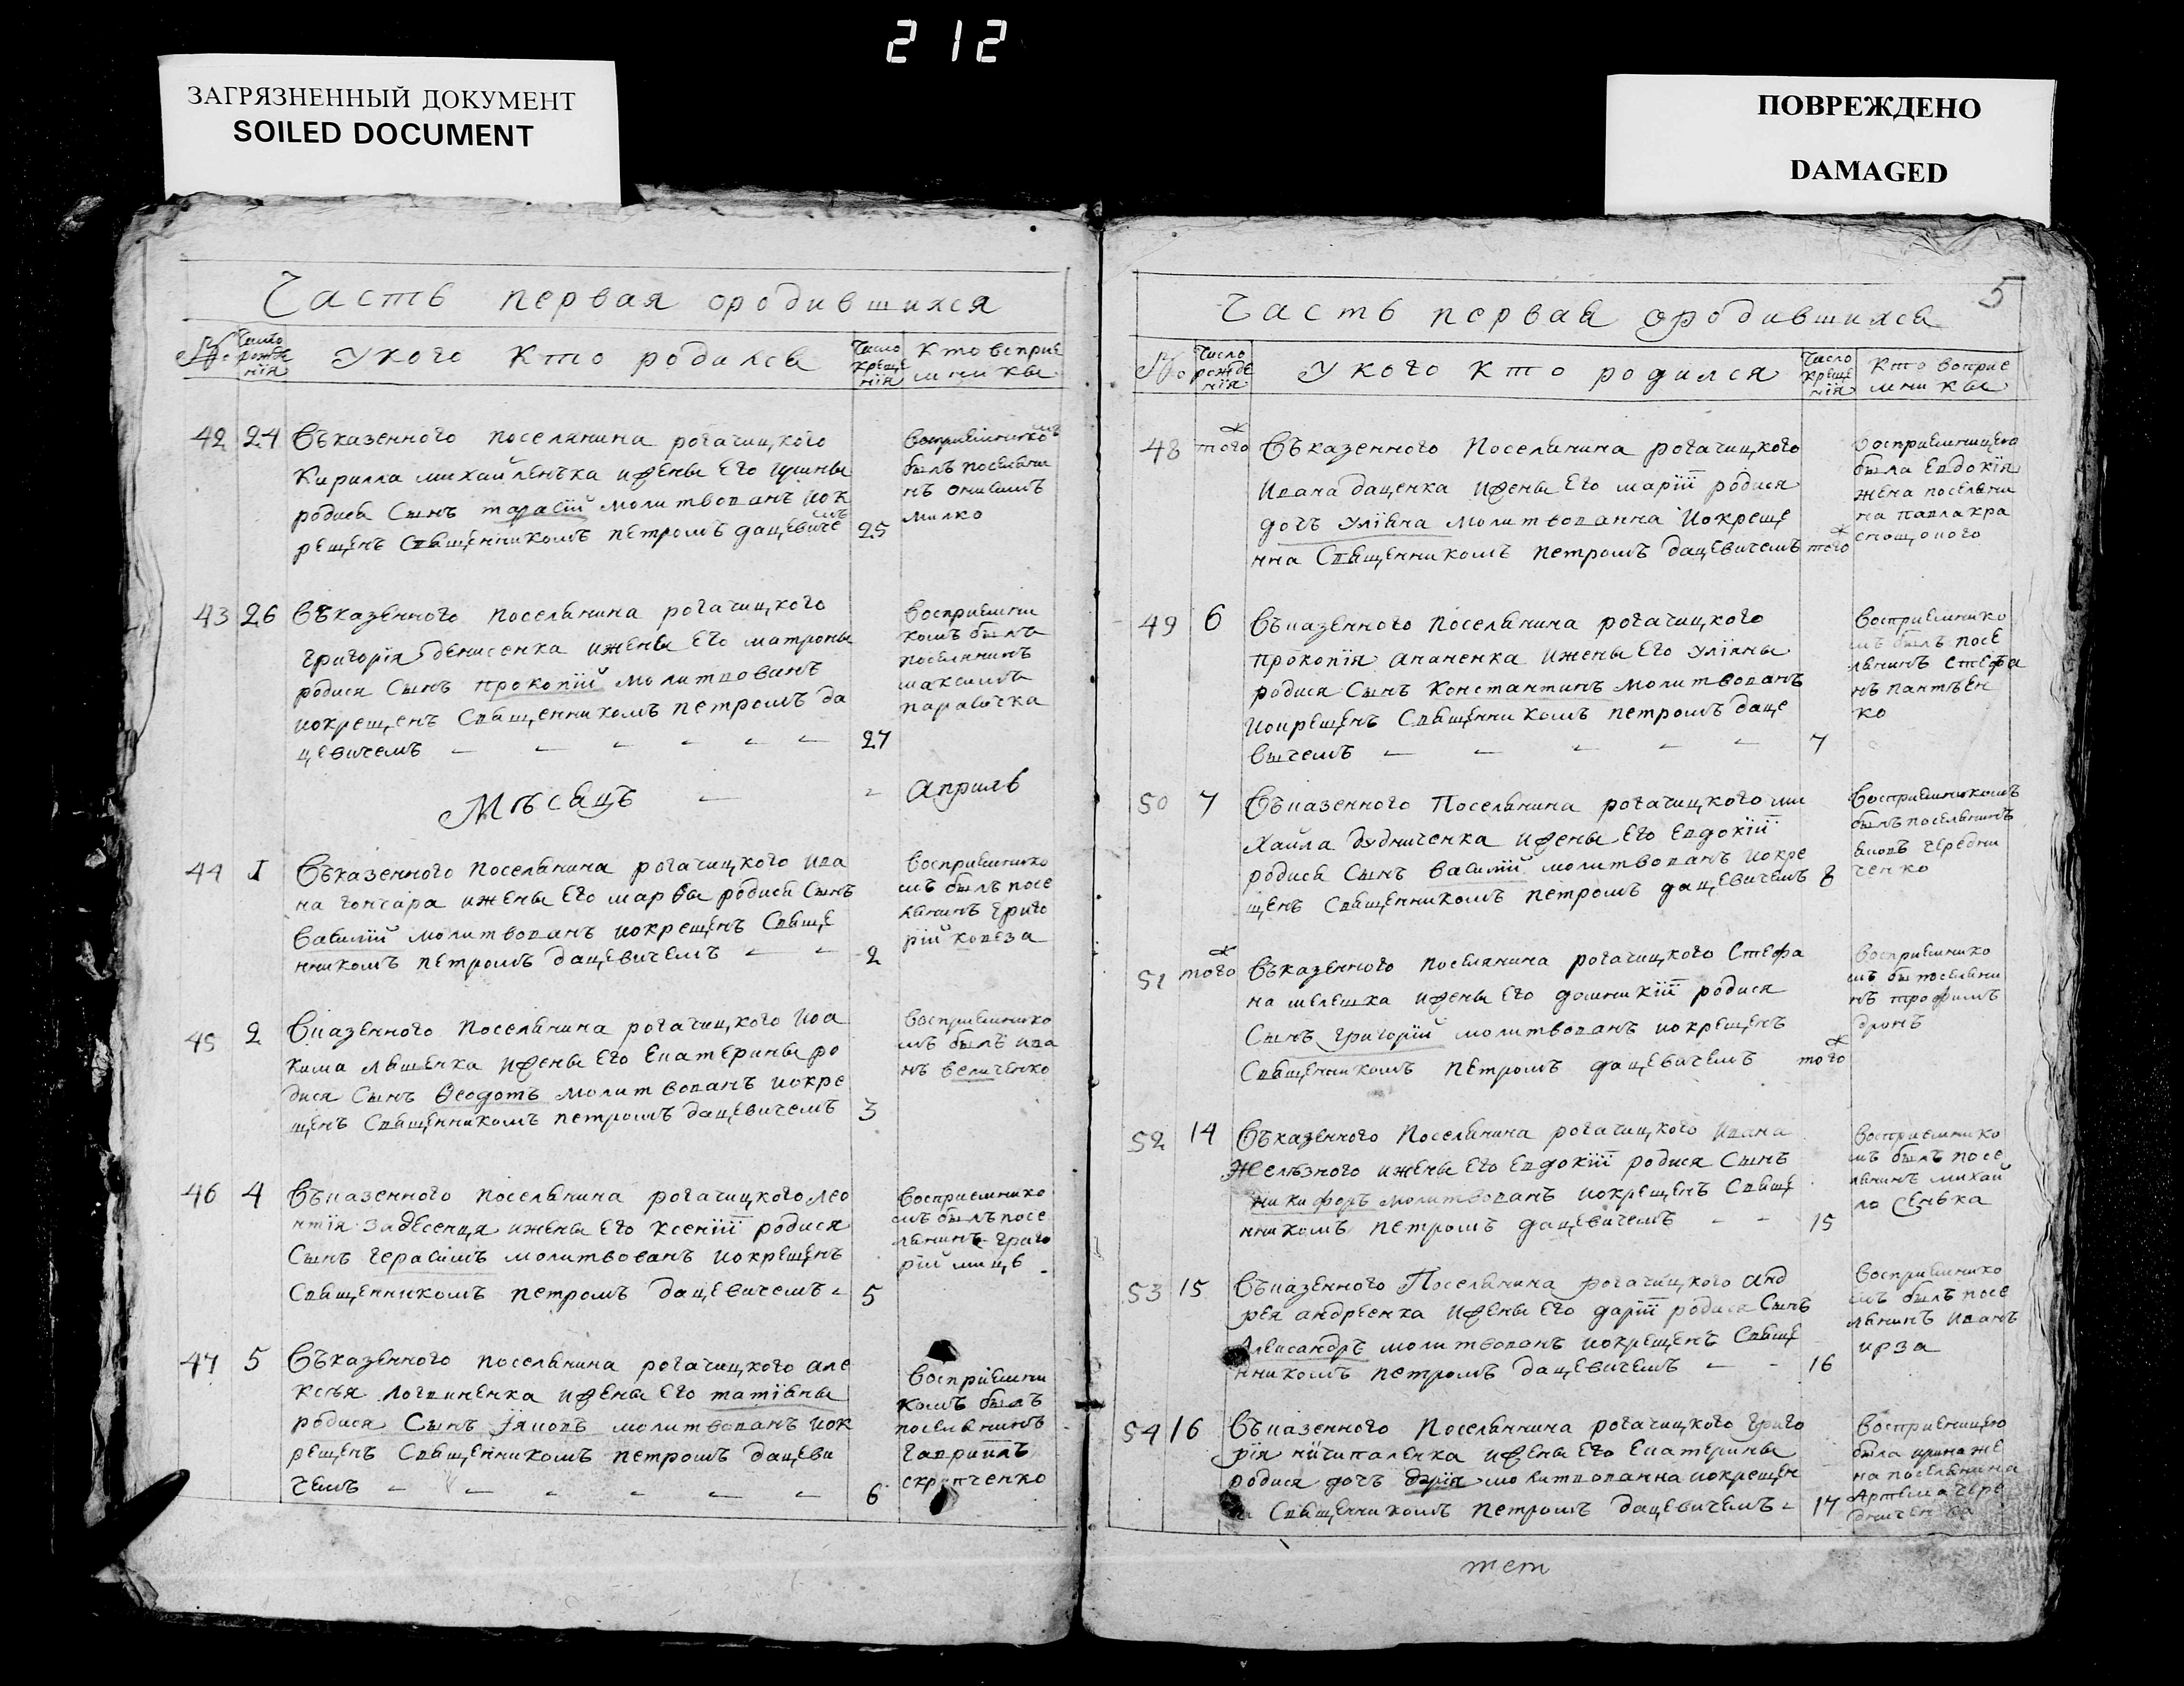 212
ЗАГРЯЗНЕННЫЙ ДОКУМЕНТ
SOILED DOCUMENT
ПОВРЕЖДЕНО
DAMAGED
Часть первая ородившихся
№ Число рожде нїя
У кого кто родился
Число креще нїя
Кто воспріе мники
42 24 Въказенного поселянина рогачицкого
Кирилла михайленъка ижены Его
родися Сынъ тарасій молитвованъ иок
рещенъ Священникомъ петромъ дацевиче мъ 25
восприемнико мъ
былъ поселяни
нъ
милко
43 26 Въказенного поселянина рогачицкого
григорія денисенка ижены Его матроны
родися Сынъ прокопій молитвованъ
иокрещенъ Священникомъ петромъ да
цевичемъ 27
восприемни
комъ былъ
поселянинъ
максимъ
Мѣсяцъ Априль
44 1 Въказенного поселянина рогачицкого ива
на гончара ижены Его марѳы родися Сынъ
василій молитвованъ иокрещенъ Свяще
нникомъ петромъ дацевичемъ 2
восприемнико
мъ былъ посе
лянинъ григо
рій
45 2 Вказенного поселянина рогачицкого иоа
кима ляшенка ижены Его Екатерины ро
дися Сынъ Ѳеодотъ молитвованъ иокре
щенъ Священникомъ петромъ дацевичемъ 3
восприемнико
мъ былъ ива
нъ величенко
46 4 Въказенного поселянина рогачицкого лео
нтія задесенця ижены Его ксеніи родися
Сынъ герасимъ молитвованъ иокрещенъ
Священникомъ петромъ дацевичемъ 5
восприемнико
мъ былъ посе
лянинъ григо
рій миць
47 5 Въказенного поселянина рогачицкого але
ксѣя логвиненка ижены Его татіяны
родися Сынъ іяковъ молитвованъ иок
рещенъ Священникомъ петромъ дацеви
чемъ 6
воспріемни
комъ былъ
поселянинъ
гавриилъ
скрипченко
5
Часть первая ородившихся
№ Число рожде нїя
У кого кто родился
Число креще нїя
Кто воспріе мники
48 того ж Въказенного Поселянина рогачицкого
Ивана даценка ижены Его маріи родися
дочь уліяна молитвованна иокреще
нна Священникомъ петромъ дацевичемъ того ж
восприемницею
была Евдокїя
жена поселяни
на павла кра
снощокого
49 6 Въказенного поселянина рогачицкого
прокопїя ананенка ижены Его уліяны
родися Сынъ константинъ молитвованъ
иокрещенъ Священникомъ петромъ даце
вычемъ 7
восприемнико
мъ былъ посе
лянинъ стефа
нъ пантѣен
ко
50 7 Въказенного Поселянина рогачицкого ми
хаила дудниченка ижены Его Евдокіи
родися Сынъ василій молитвованъ иокре
щенъ Священникомъ петромъ дацевичемъ 8
восприемникомъ
былъ поселянинъ
яковъ чередни
ченко
51 того ж Въказенного поселянина рогачицкого Стефа
на мелешка ижены Его домникіи родися
Сынъ григорій молитвованъ иокрещенъ
Священникомъ петромъ дацевичемъ того ж
восприемнико
мъ бы поселяни
нъ трофимъ
дронъ
52 14 Въказенного Поселянина рогачицкого ивана
Желѣзного ижены Его Евдокіи родися Сынъ
никифоръ молитвованъ иокрещенъ Свяще
нникомъ петромъ дацевичемъ 15
восприемнико
мъ былъ посе
лянинъ михай
ло сенька
53 15 Въказенного Поселянина рогачицкого анд
рея андреенка ижены Его даріи родися Сынъ
Александръ молитвованъ иокрещенъ Свяще
нникомъ петромъ дацевичемъ 16
восприемнико
мъ былъ посе
лянинъ иванъ
ирза
54 16 Въказенного Поселянина рогачицкого григо
рія ничипаленка ижены Его Екатерины
родися дочь дарія молитвованна иокрещен
на Священникомъ петромъ дацевичемъ 17
восприемницею
была ирина же
на поселянина
Артема чере
дниченка